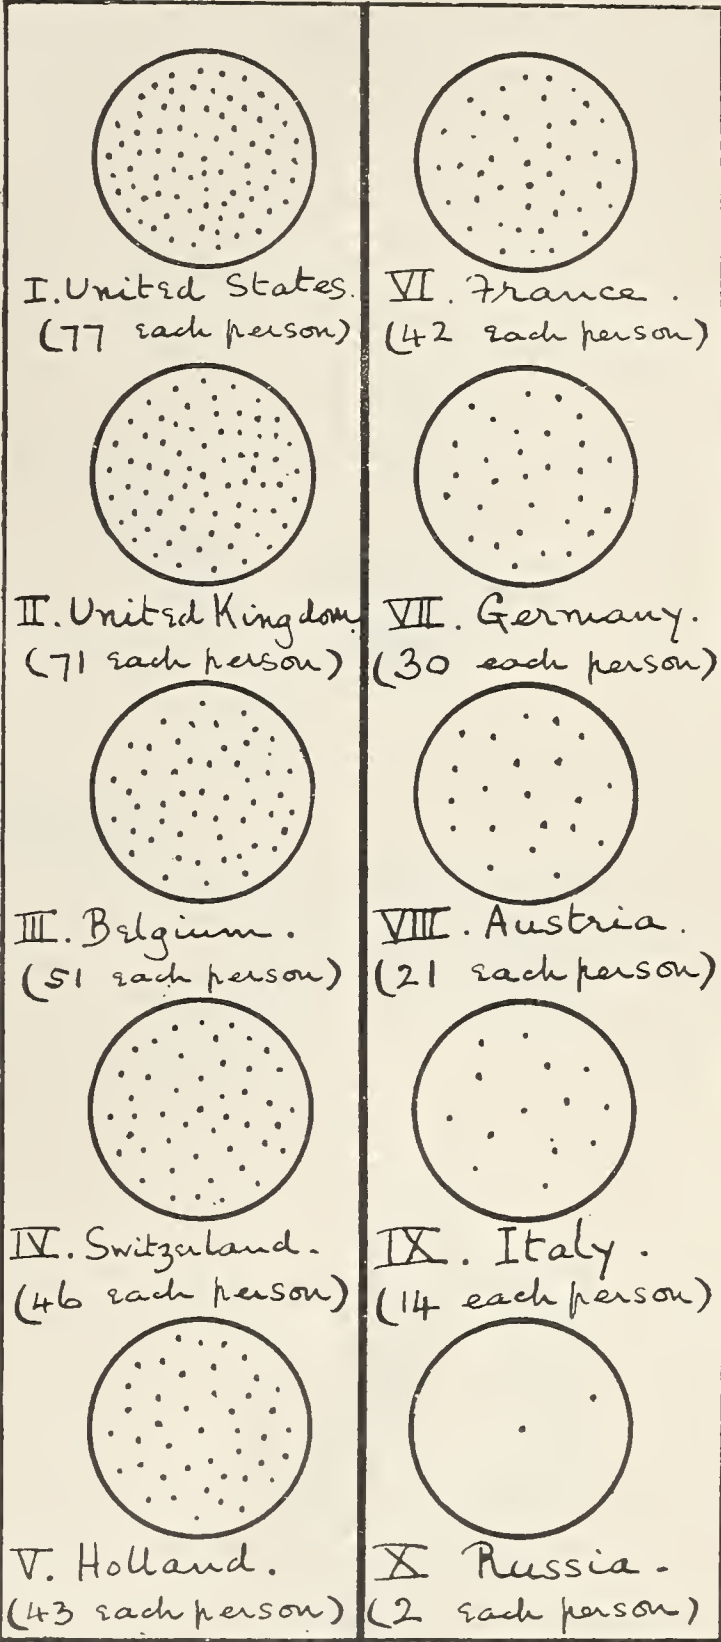 I. United States.
(77 each person)
II. United Kingdom
(71 each person)
III. Belgium.
(51 each person)
IV. Switzerland.
(46 each person)
V. Holland.
(43 each person)
VI. France.
(42 each person)
VII. Germany.
(30 each person)
VIII. Austria.
(21 each person)
IX. Italy.
(14 each person)
X Russia.
(2 each person)